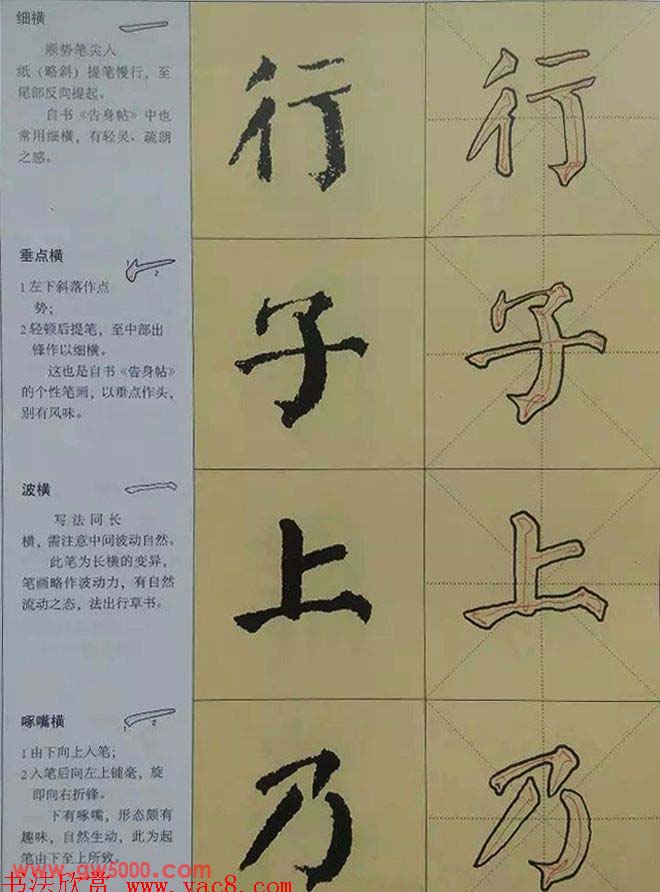 细横
顺势笔尖入
纸（略斜）提笔慢行，至
尾部反向提起。
自书《告身帖》中也
常用细横，有轻灵、疏朗
之感。
行
行
垂点横
1
2
1 左下斜落作点
势；
2 轻顿后提笔，至中部出
锋作以细横。
这也是自书《告身帖》
的个性笔画，以垂点作头，
别有风味。
子
子
波横
写法同长
横，需注意中间波动自然。
此笔为长横的变异，
笔画略作波动力，有自然
流动之态，法出行草书。
上
上
啄嘴横
1
2
1 由下向上入笔；
2 入笔后向左上铺毫，旋
即向右折锋。
下有啄嘴，形态颇有
趣味，自然生动，此为起
笔由下至上所致。
乃
乃
www.gw5000.com
书法欣赏 www.yac8.com